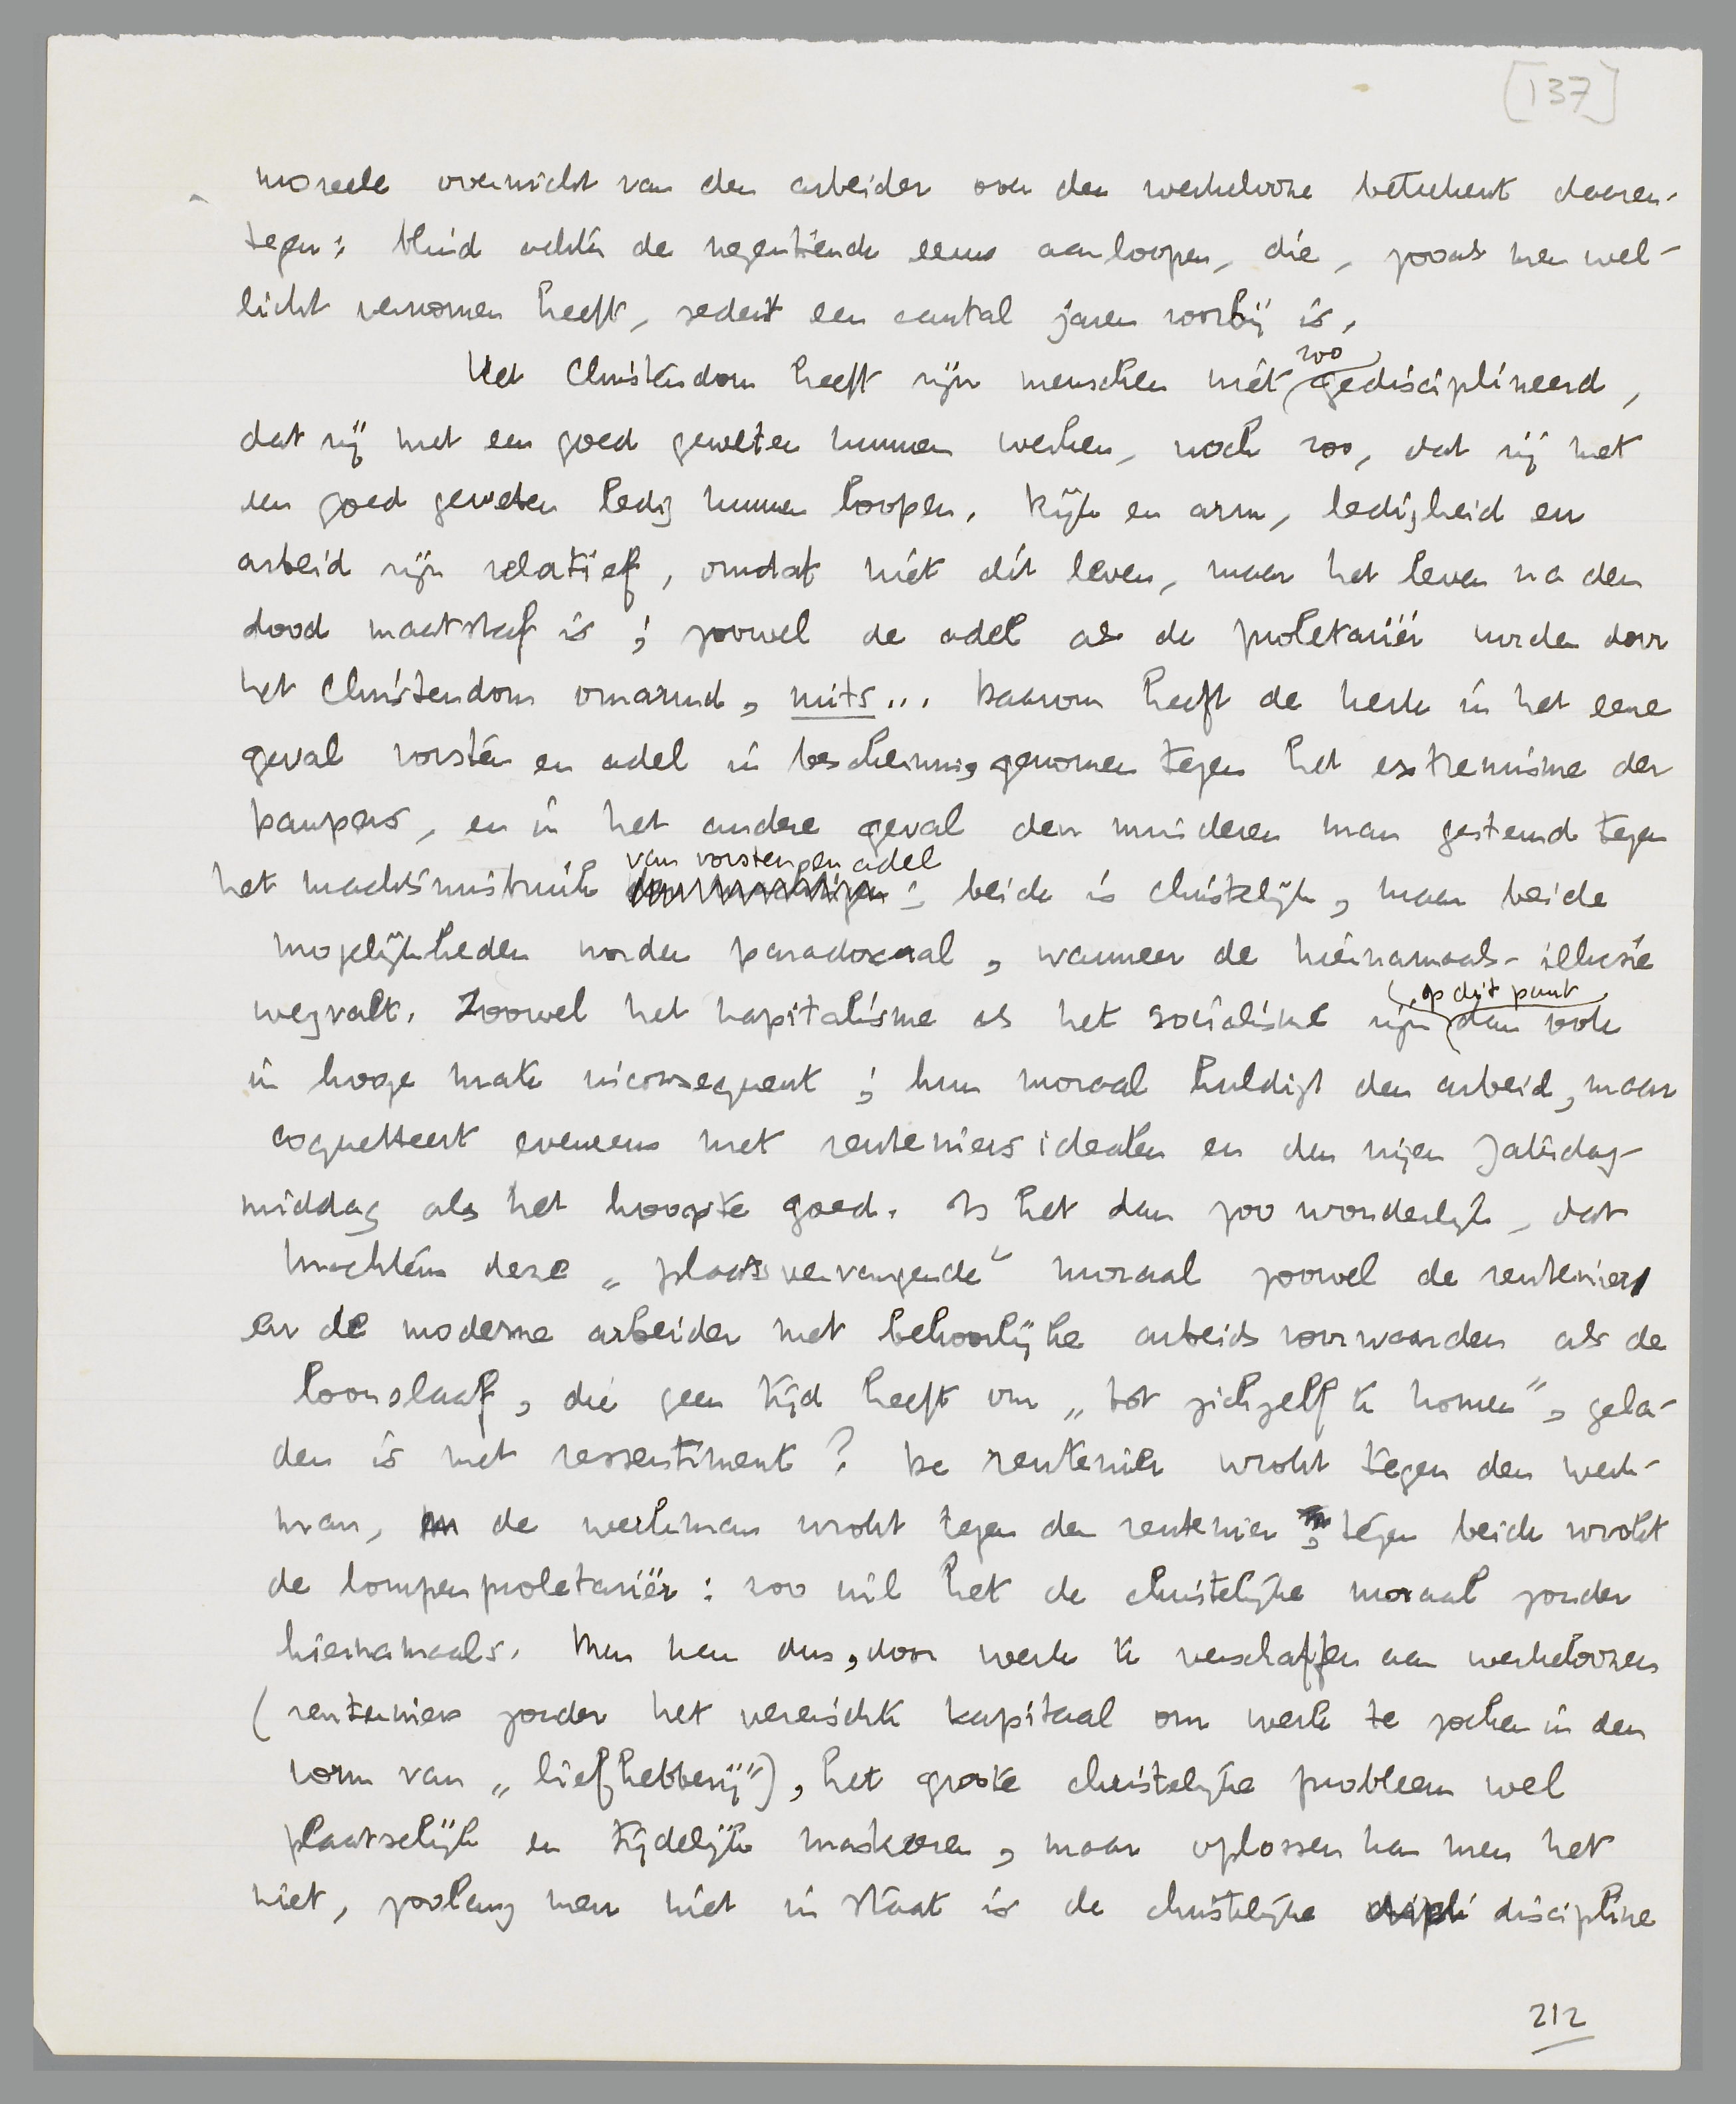 [137]
moreele overwicht van den arbeider over den werkelooze beteekent daaren-
tegen: blind achter de negentiende eeuw aanloopen, die, zooals men wel-
licht vernomen heeft, sedert een aantal jaren voorbij is.
Het Christendom heeft zijn menschen niet zoo gedisciplineerd,
dat zij met een goed geweten kunnen werken, noch zoo, dat zij met
een goed geweten ledig kunnen loopen. Rijk en arm, ledigheid en
arbeid zijn relatief, omdat niet dit leven, maar het leven na den
dood maatstaf is; zoowel de adel als de proletariër worden door
het Christendom omarmd, mits... Daarom heeft de kerk in het eene
geval vorsten en adel in bescherming genomen tegen het extremisme der
paupers, en in het andere geval den minderen man gesteund tegen
het machtsmisbruik van vorsten en adel; beide is christelijk, maar beide
mogelijkheden worden paradoxaal, wanneer de hiernamaals-illusie
wegvalt. Zoowel het kapitalisme als het socialisme zijn op dit punt dan ook
in hooge mate inconsequent; hun moraal huldigt den arbeid, maar
coquetteert eveneens met renteniersidealen en den vrijen Zaterdag-
middag als het hoogste goed. Is het dan zoo wonderlijk, dat
krachtens deze „plaatsvervangende” moraal zoowel de rentenier
en de moderne arbeider met behoorlijke arbeidsvoorwaarden als de
loonslaaf, die geen tijd heeft om „tot zichzelf te komen”, gela-
den is met ressentiment? De rentenier wrokt tegen den werk-
man, de werkman wrokt tegen den rentenier, tegen beide wrokt
de lompenproletariër: zoo wil het de christelijke moraal zonder
hiernamaals. Men kan dus, door werk te verschaffen aan werkeloozen
(renteniers zonder het vereischte kapitaal om werk te zoeken in den
vorm van „liefhebberij”), het groote christelijke probleem wel
plaatselijk en tijdelijk maskeeren, maar oplossen kan men het
niet, zoolang men niet in staat is de christelijke discipline
212